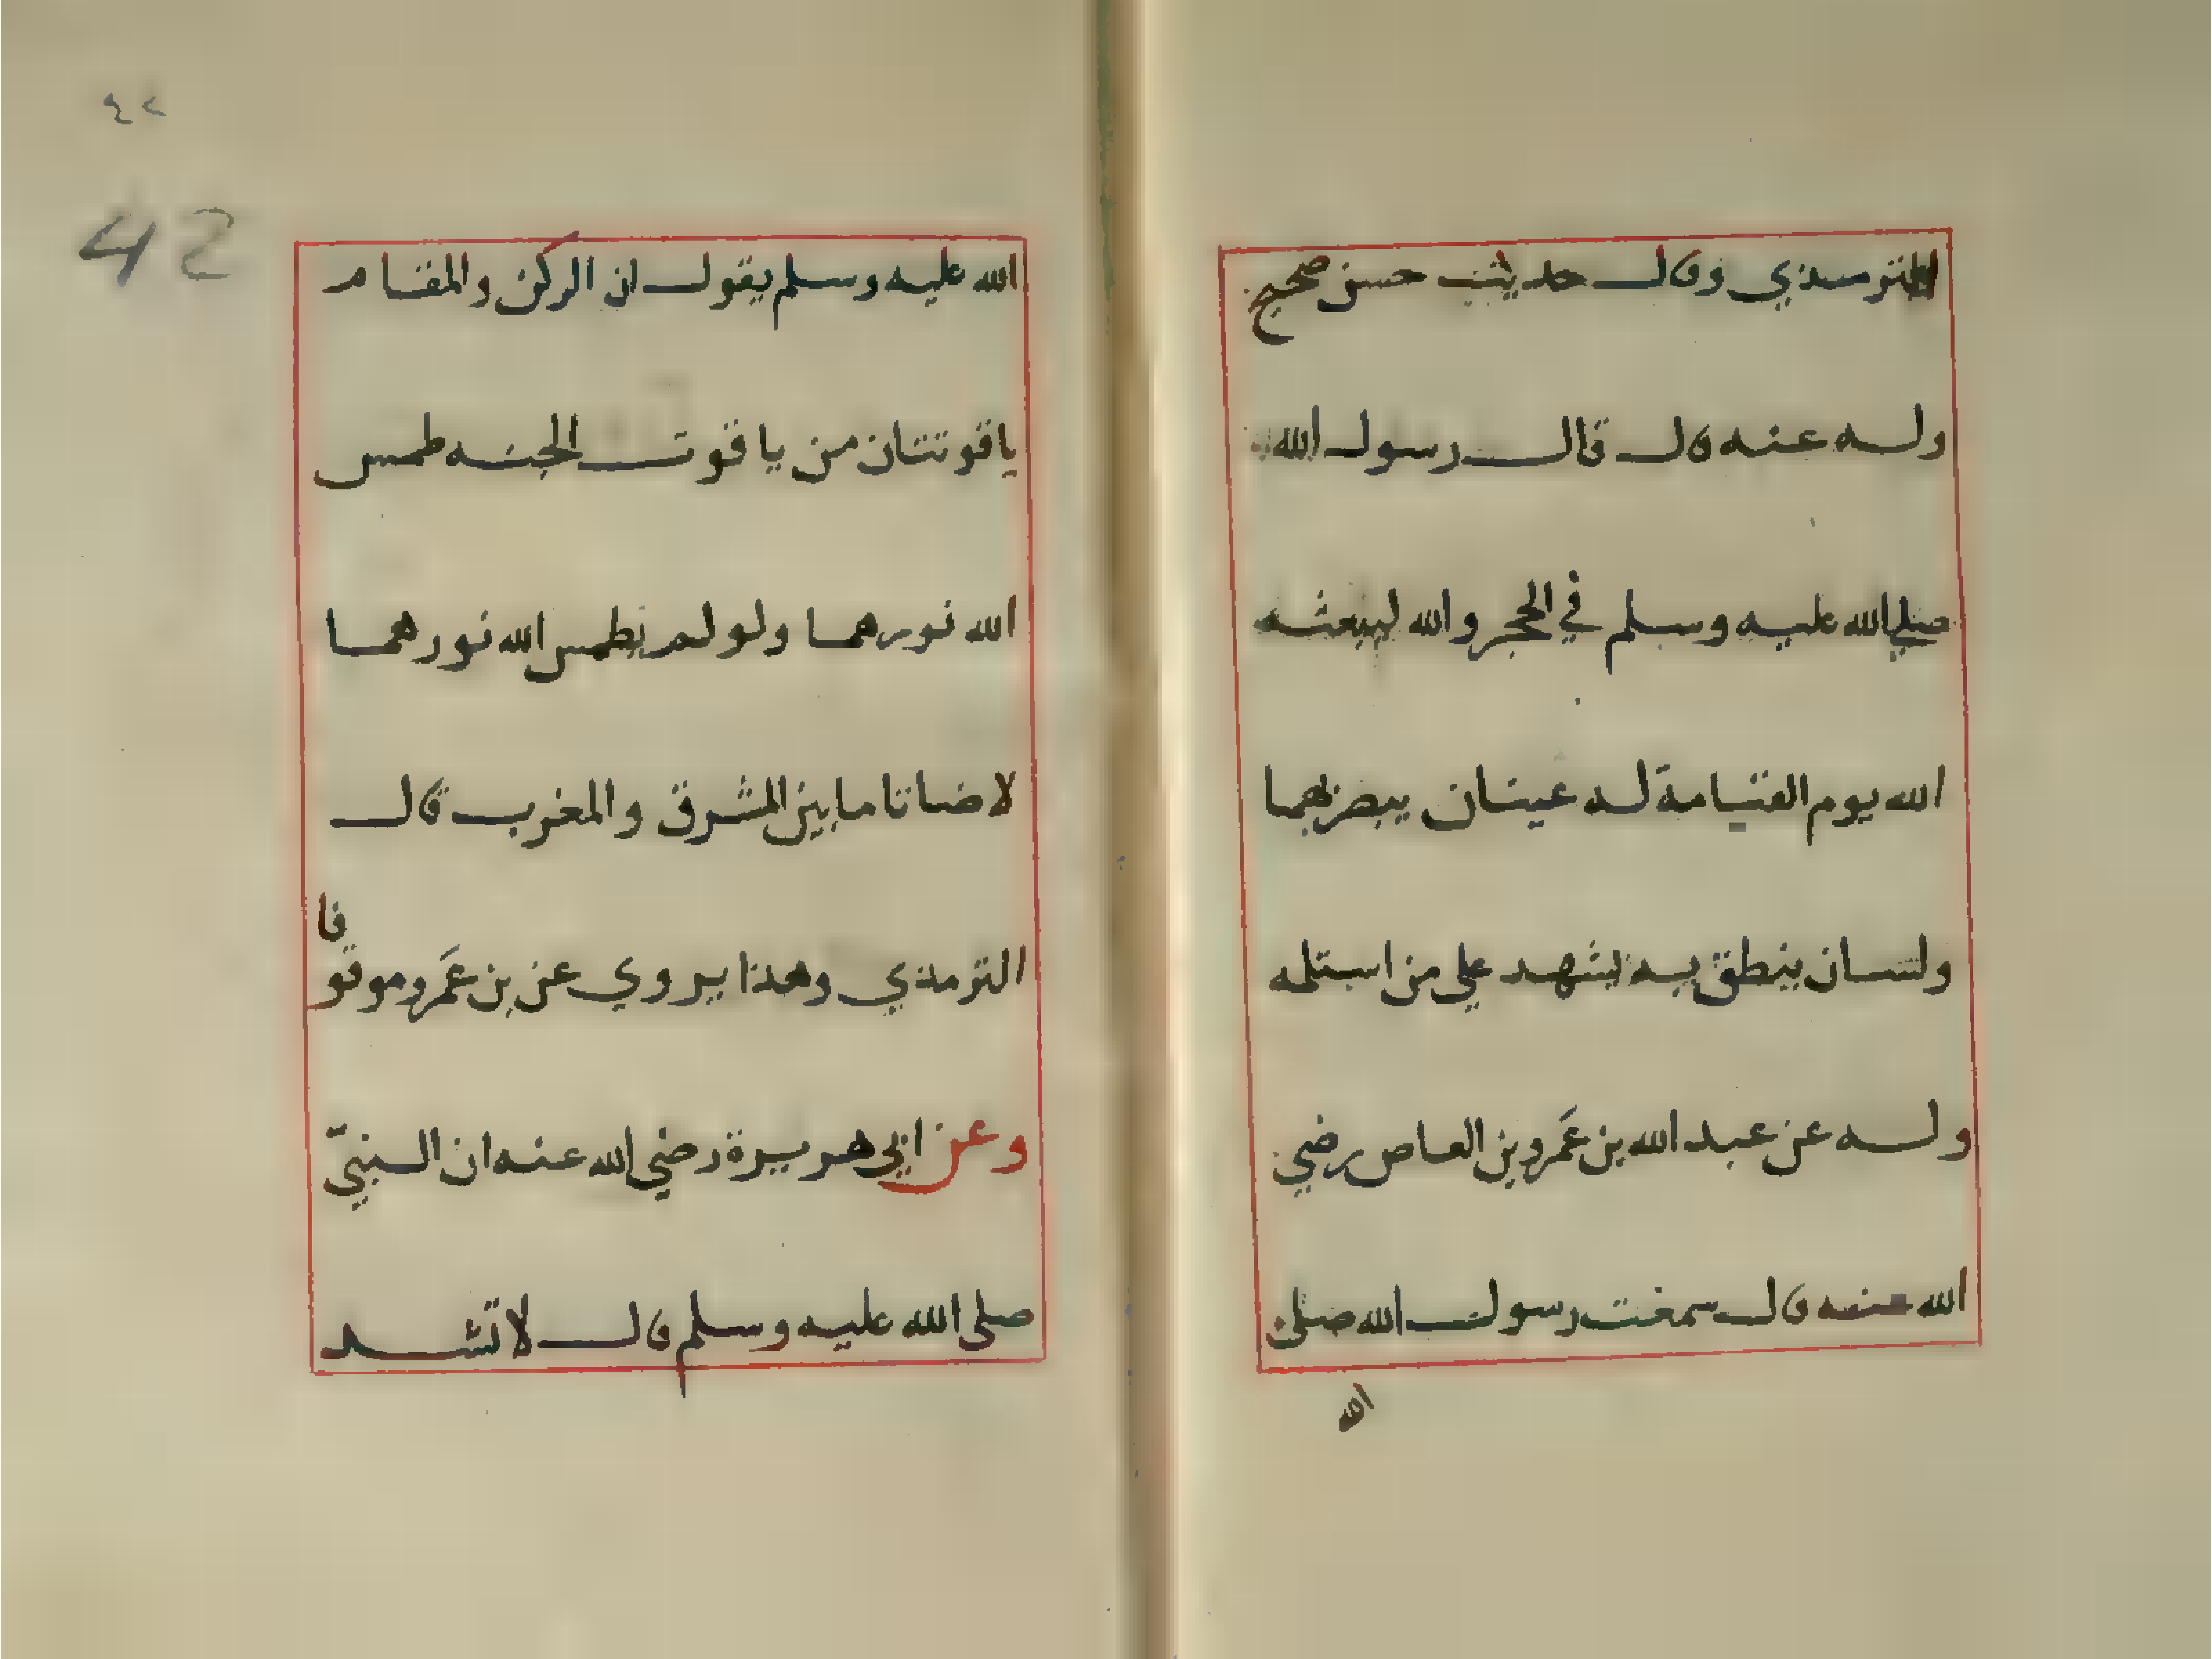 الترمذي وقال حديث حسن صحيح
وله عنه قال قال رسول الله
صلي الله عليه وسلم في الحجر والله ليبعثنه
الله يوم القيامة له عينان يبصر بهما
ولسان ينطق به يشهد علي من استلمه
وله عن عبد الله بن عمرو بن العاص رضي
الله عنه قال سمعت رسول الله صلى
الله
٤٢
42
الله عليه وسلم يقول ان الركن والمقام
ياقوتتان من ياقوت الجنه طمس
الله نورهما ولو لم يطمس الله نورهما
لاضاتا ما بين المشرق والمغرب قال
الترمذي وهذا يروي عن بن عمرو موقوفا
وعن ابي هريرة رضي الله عنه ان النبيّ
صلى الله عليه وسلم قال لا تشد